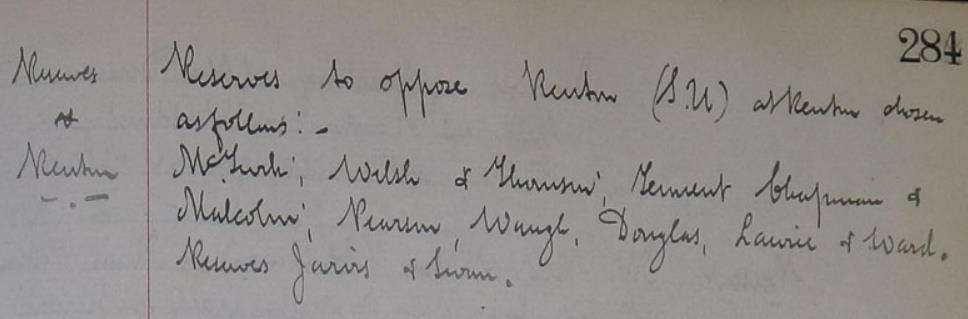 284
Reserves Reserves to oppose Renton (S.U) at Renton chosen
at as follows:-
Renton McGurk; Welsh & Thomson; Tennent Chapman &
Malcolm; Pearson, Waugh, Douglas, Laurie & Ward.
Reserves Jarvis & Swan.